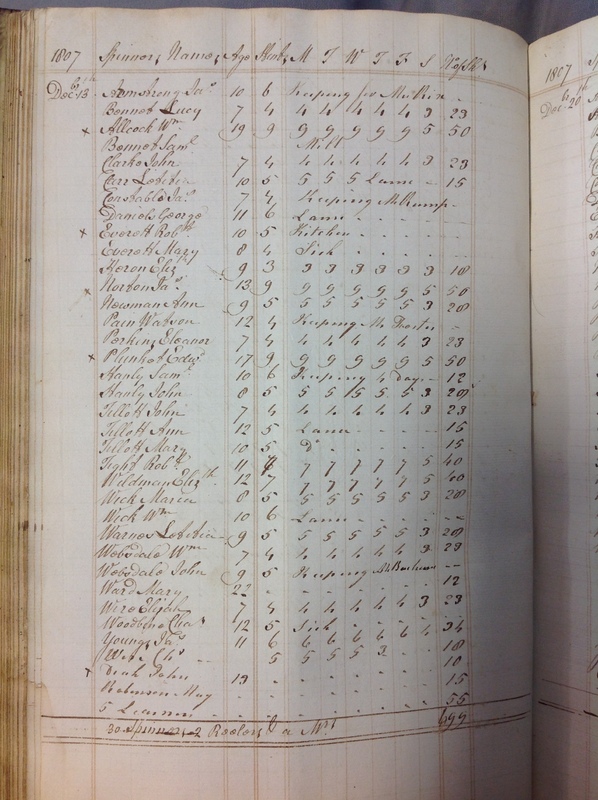 1807 Spinners Names Age Stint M T W T F S No Sks
Decbr 13th Armstrong Jas 10 6 Keeping for
Bennet Lucy 7 4 4 4 4 4 4 3 23
x Allcock Wm 19 9 9 9 9 9 9 5 50
Bennet Saml
Clarke John 7 4 4 4 4 4 4 3 23
Carr Letitia 10 5 5 5 5 Lame - 15
Constable Jas 7 4 Keeping Mr Rump
Daniels George 11 6 Lame
x Everett Robt 10 5 Kitchen
Everett Mary 8 4 Sick
Heron Elizth 9 3 3 3 3 3 3 3 18
x Norton Jas 13 9 9 9 9 9 9 5 50
Newman Ann 9 5 5 5 5 5 5 3 28
Pain Watson 12 4 Keeping Mr
Perkins Eleanor 7 4 4 4 4 4 4 3 23
x Plunket Edwd 17 9 9 9 9 9 9 5 50
Hanly Saml 10 6 Keeping 4 days 12
Hanly John 8 5 5 5 5 5 5 3 28
Tillott John 7 4 4 4 4 4 4 3 23
Tillott Ann 12 5 Lame 15
Tillott Mary 10 5 Do 15
Tight Robt 11 7 7 7 7 7 7 5 40
Wildman Elizth 12 7 7 7 7 7 7 5 40
Wick Maria 8 5 5 5 5 5 5 3 28
Wick Wm 10 6 Lame
Warnes Letitia 9 5 5 5 5 5 5 3 28
Websdale Wm 7 4 4 4 4 4 4 3 23
Websdale John 9 5 Keeping Mr
Ward Mary 22 12
Wire Elijah 7 4 4 4 4 4 4 3 23
Woodbine Chas 12 5 Sick
Youngs Jas 11 6 6 6 6 6 6 4 34
Wire Chs 5 5 5 5 3 18
x John 13 10
Robinson May 15
5 Learners 55
30 Spinners 2 Reelers & a Mrs 699